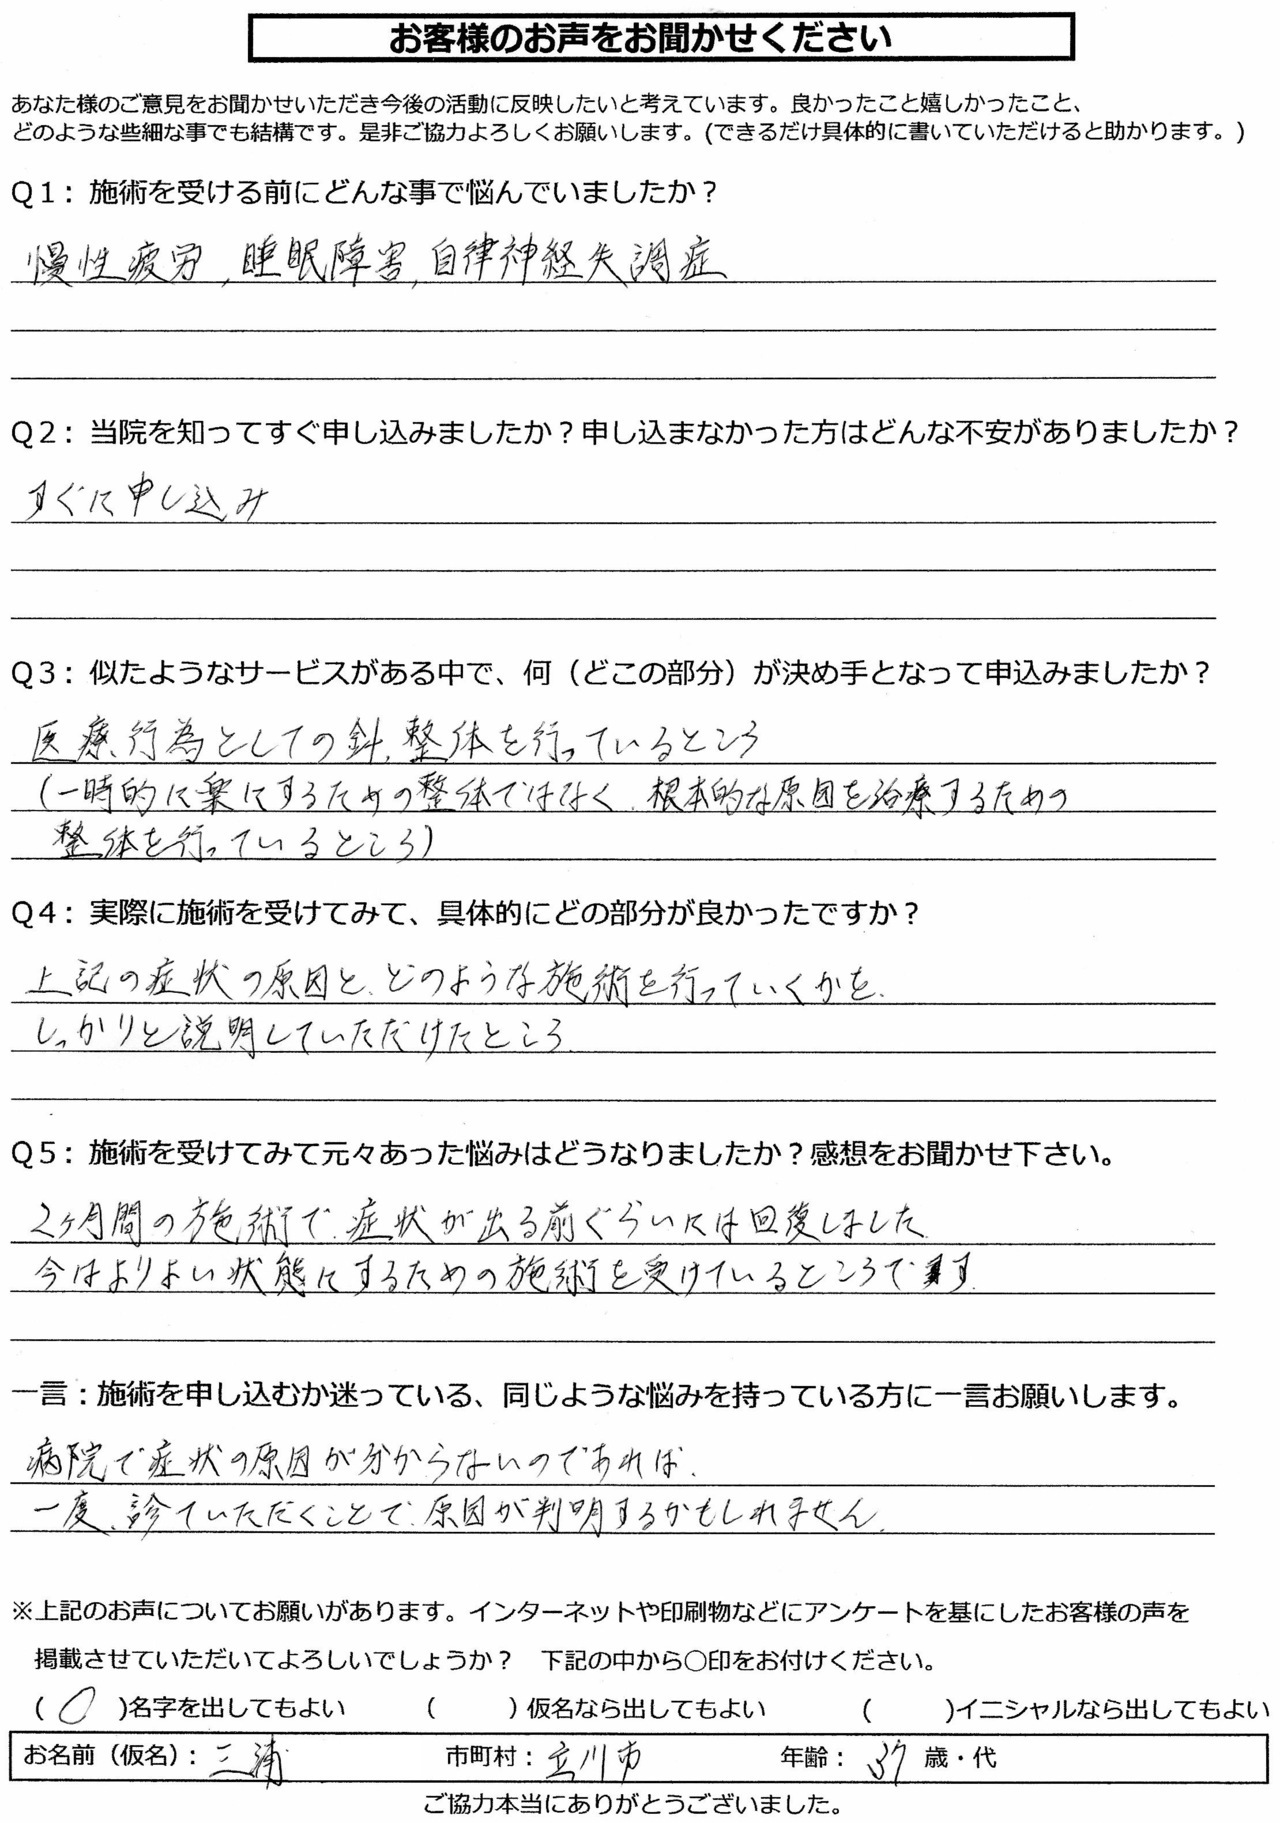 お客様のお声をお聞かせください
あなた様のご意見をお聞かせいただき今後の活動に反映したいと考えています。良かったこと嬉しかったこと、
どのような些細な事でも結構です。是非ご協力よろしくお願いします。(できるだけ具体的に書いていただけると助かります。)
Q1：施術を受ける前にどんな事で悩んでいましたか？
慢性疲労,睡眠障害,自律神経失調症
Q2：当院を知ってすぐ申し込みましたか？申し込まなかった方はどんな不安がありましたか？
すぐに申し込み
Q3：似たようなサービスがある中で、何（どこの部分）が決め手となって申込みましたか？
医療行為としての針、整体を行っているところ
(一時的に楽にするための整体ではなく、根本的な原因を治療するための
整体を行っているところ)
Q4：実際に施術を受けてみて、具体的にどの部分が良かったですか？
上記の症状の原因と、どのような施術を行っていくかを、
しっかりと説明していただけたところ。
Q5：施術を受けてみて元々あった悩みはどうなりましたか？感想をお聞かせ下さい。
2ヶ月間の施術で、症状が出る前ぐらいには回復しました。
今はよりよい状態にするための施術を受けているところです。
一言：施術を申し込むか迷っている、同じような悩みを持っている方に一言お願いします。
病院で症状の原因が分からないのであれば、
一度、診ていただくことで、原因が判明するかもしれません。
※上記のお声についてお願いがあります。インターネットや印刷物などにアンケートを基にしたお客様の声を
掲載させていただいてよろしいでしょうか？　下記の中から○印をお付けください。
(○)名字を出してもよい　(　)仮名なら出してもよい　(　)イニシャルなら出してもよい
お名前（仮名）：三浦　市町村：立川市　年齢：37歳・代
ご協力本当にありがとうございました。